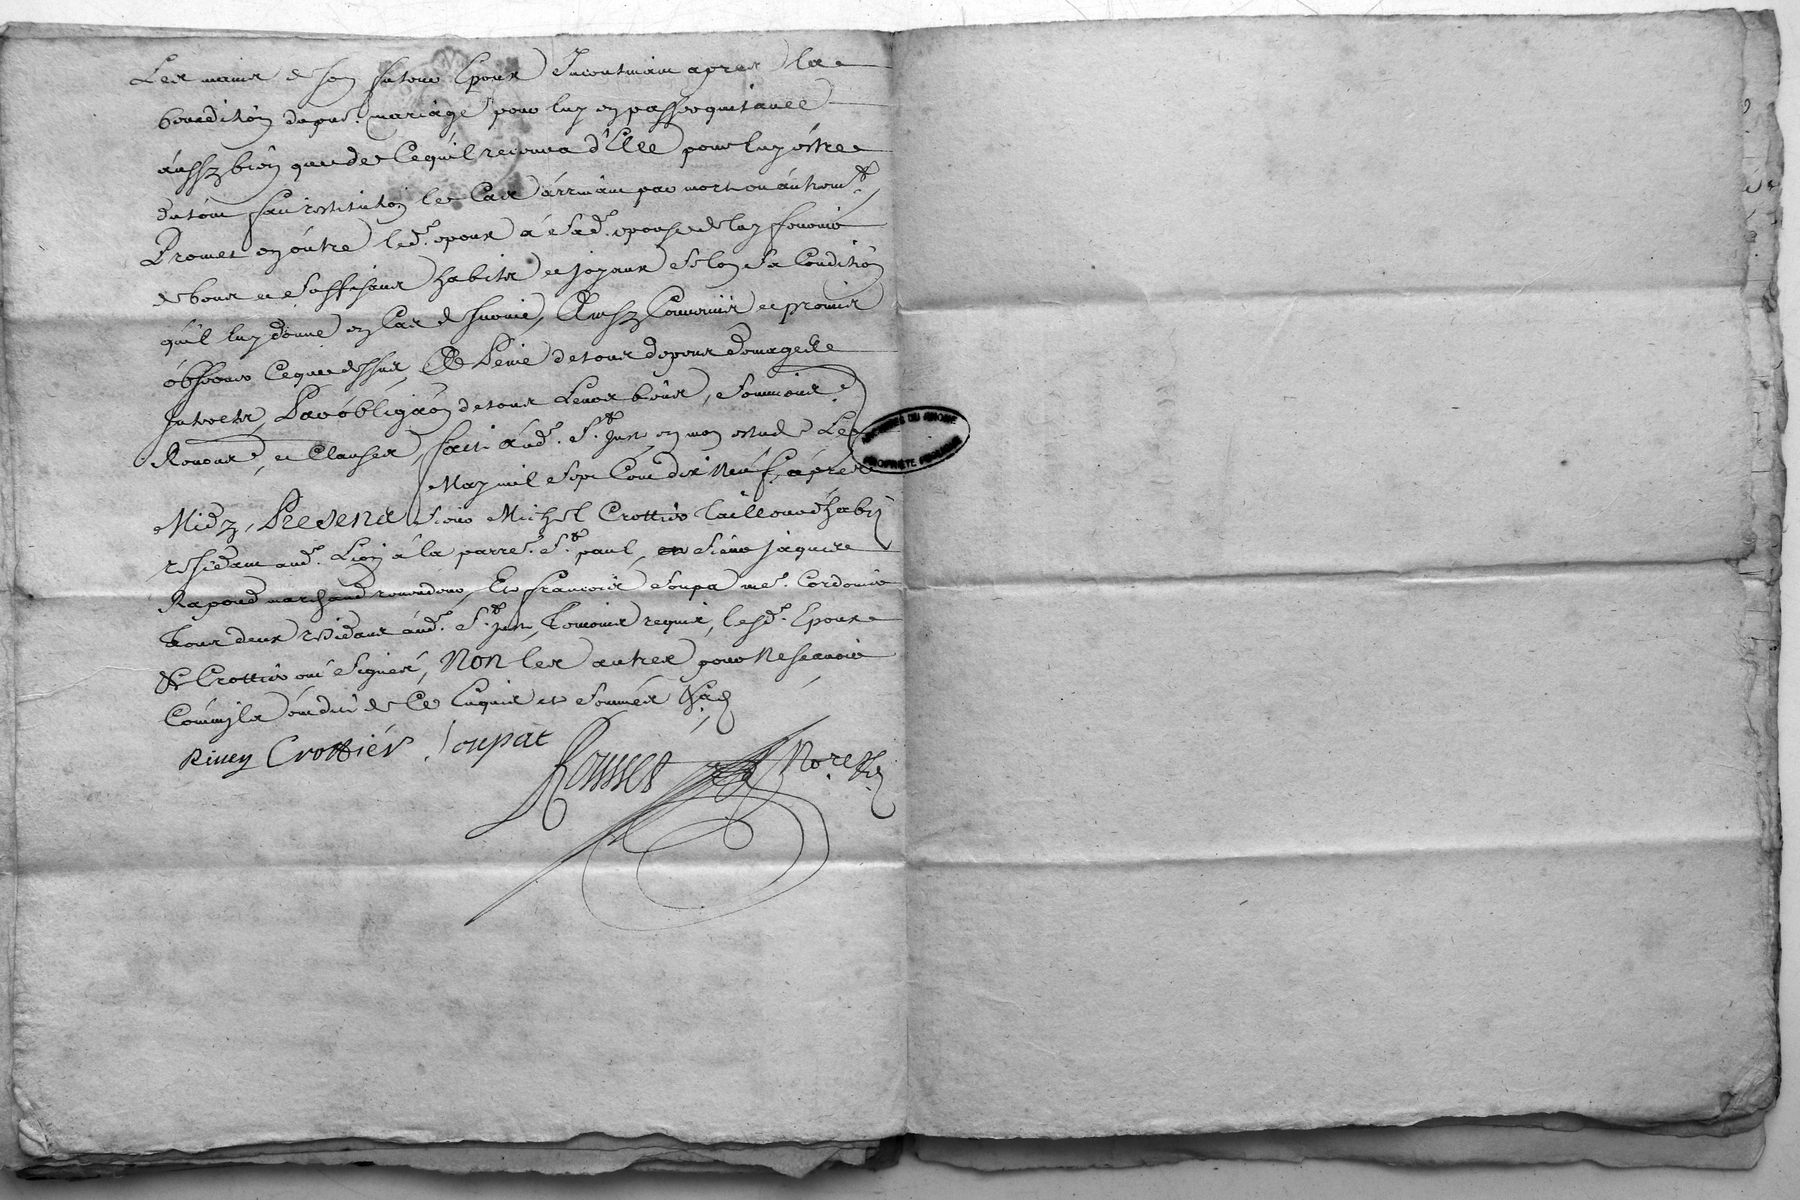 Les mains de son futeur Epoux Incontinam apres la
benedition du pnt. mariage pour luy en passer quittance
aussy bien que de Ce qu'il recevra d'Elle pour luy estre
du tout fait restitution le Cas arrivant par mort ou autremt.
Promet en outre led. epoux á Sad. epouse de luy fournir
de bons et Suffisans habits et joyaux Selon Sa Condition
qu'il luy donne en Cas de survie, Ainsy Convenu et promis
observer Ce que dessus, A Peine de tous depens domages et
Interets, Par obligaõn de tous Leurs biens, Soumions.
Renons. et Clauses, fait aud. St. Just en mon estude Le
May mil Sept Cent dix Neuf apres
Midy, Presens Sieur Michel Crottier Tailleur d'habis
residant aud. Lion á la parre. St. paul, Sieur jaques
Rapoud marchand revendeur, Et francois Soupa me. Cordonnier
Tous deux residans aud. St. Just, Temoins requis, lesd. Epoux
& Crottier ont Signés, Non les autres pour ne scavoir
Comm'ils ont dit de Ce Enquis et Sommés
Crottiér Soupat
Rousset No.re
ARCHIVES DU RHONE
PROPRIETE PUBLIQUE